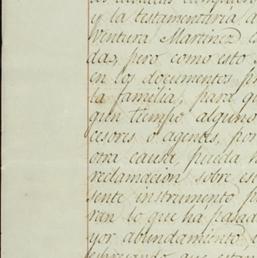 y la testamentaria d
ventura Martinez c
das, pero como esto
en los documentos p
la familia, para q
gun tiempo alguno
cesores o agentes, por
otra causa, pueda h
reclamacion sobre es
sente instrumento p
ren lo que ha pasad
yor abundamiento